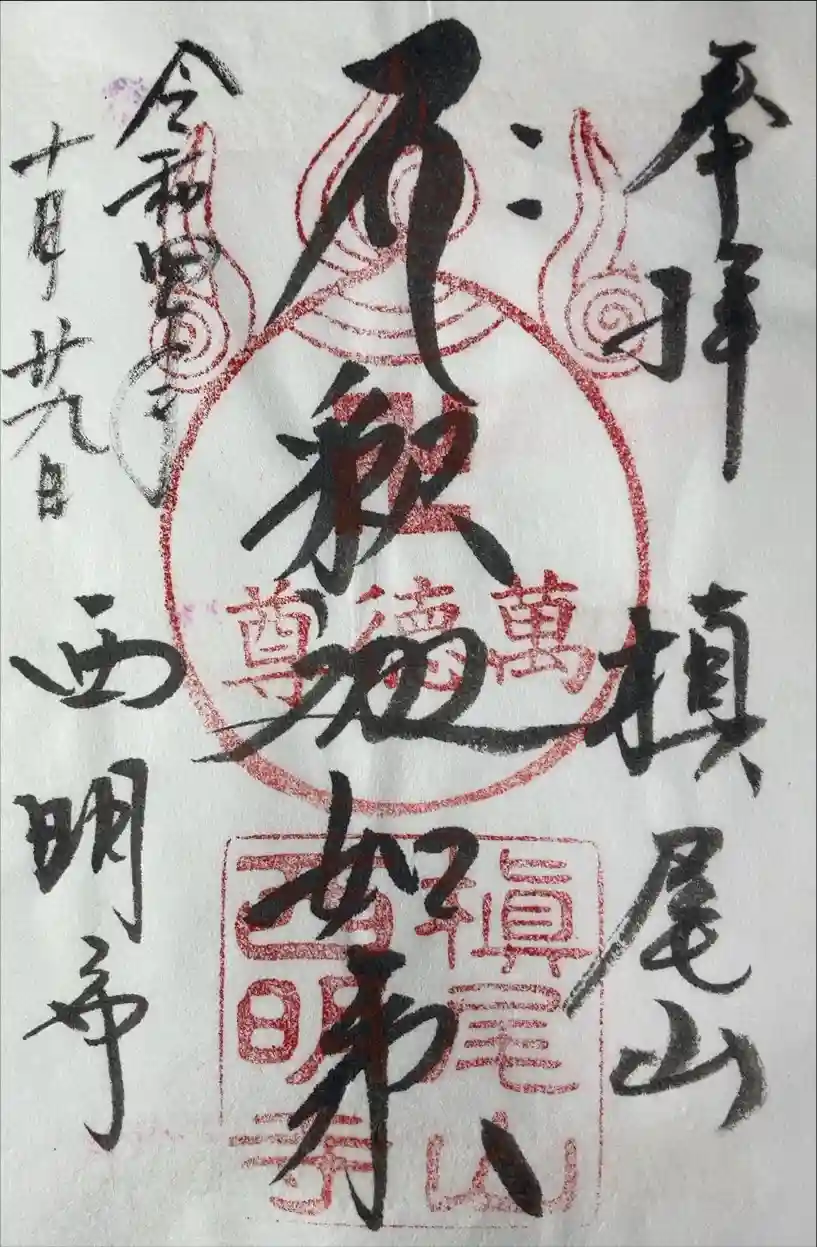 奉拝
槙尾山
釈迦如来
令和四年
十月廿九日
西明寺
萬徳尊
槇尾山
西明寺